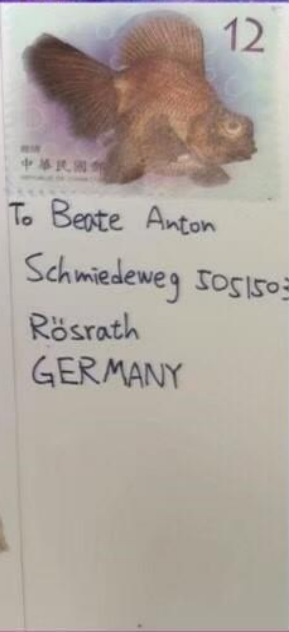 12
中華民國郵
To Beate Anton
Schmiedeweg 5051503
Rösrath
GERMANY